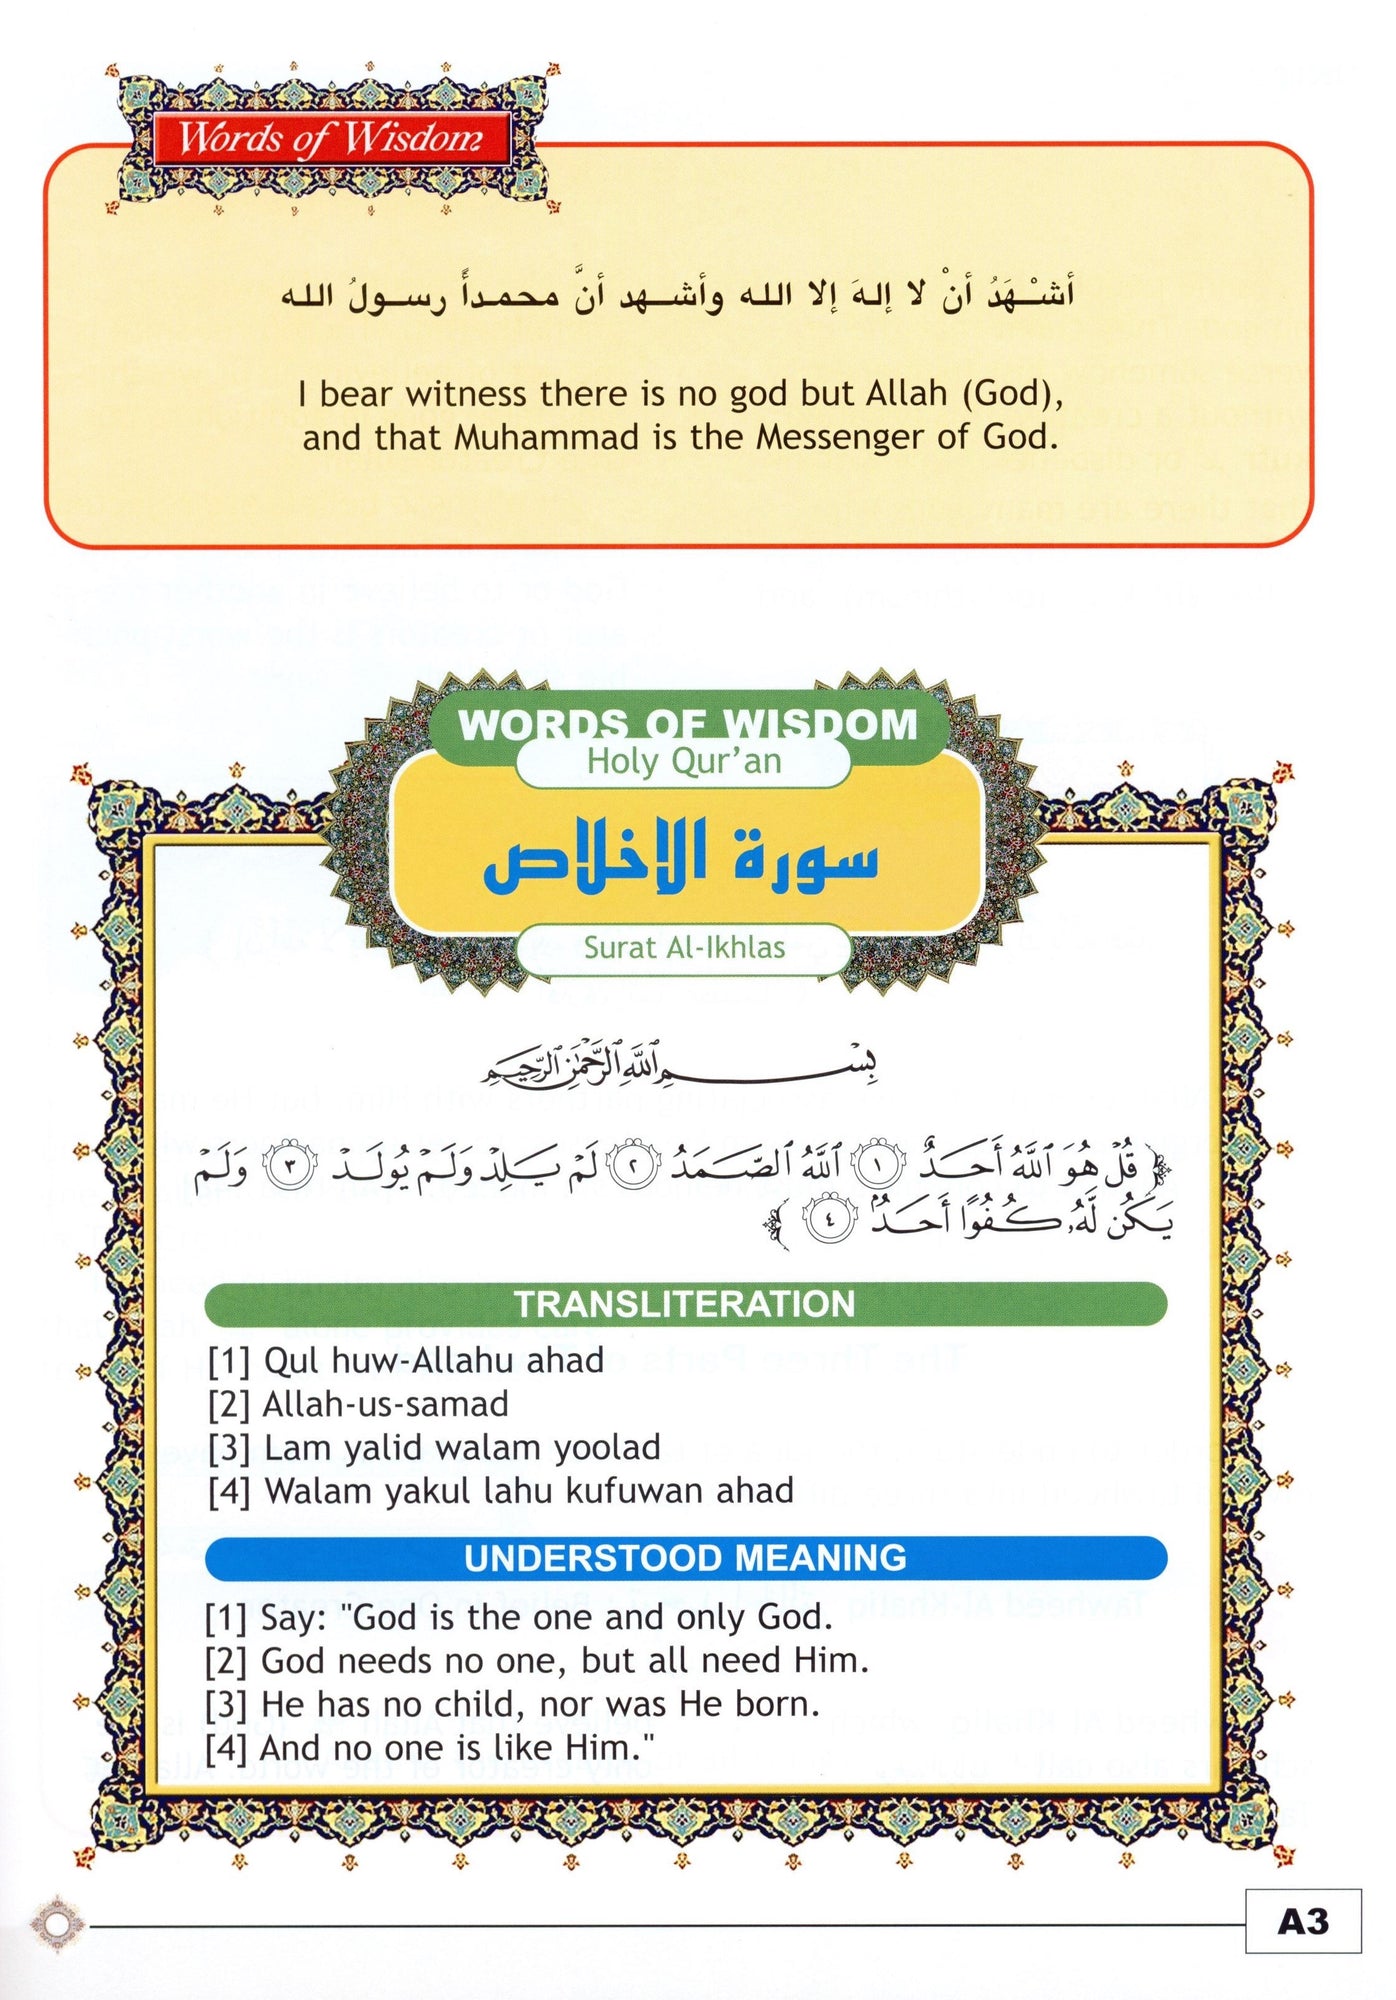 Words of Wisdom
أشـْـهَدُ أنْ لا إلهَ إلا الله وأشـهد أنَّ محمـداً رسـولُ الله
I bear witness there is no god but Allah (God),
and that Muhammad is the Messenger of God.
WORDS OF WISDOM
Holy Qur’an
سورة الإخلاص
Surat Al-Ikhlas
بِسْمِ ٱللَّهِ ٱلرَّحْمَٰنِ ٱلرَّحِيمِ
﴿ قُلْ هُوَ ٱللَّهُ أَحَدٌ ١ ٱللَّهُ ٱلصَّمَدُ ٢ لَمْ يَلِدْ وَلَمْ يُولَدْ ٣ وَلَمْ
يَكُن لَّهُۥ كُفُوًا أَحَدٌۢ ٤ ﴾
TRANSLITERATION
[1] Qul huw-Allahu ahad
[2] Allah-us-samad
[3] Lam yalid walam yoolad
[4] Walam yakul lahu kufuwan ahad
UNDERSTOOD MEANING
[1] Say: "God is the one and only God.
[2] God needs no one, but all need Him.
[3] He has no child, nor was He born.
[4] And no one is like Him."
A3